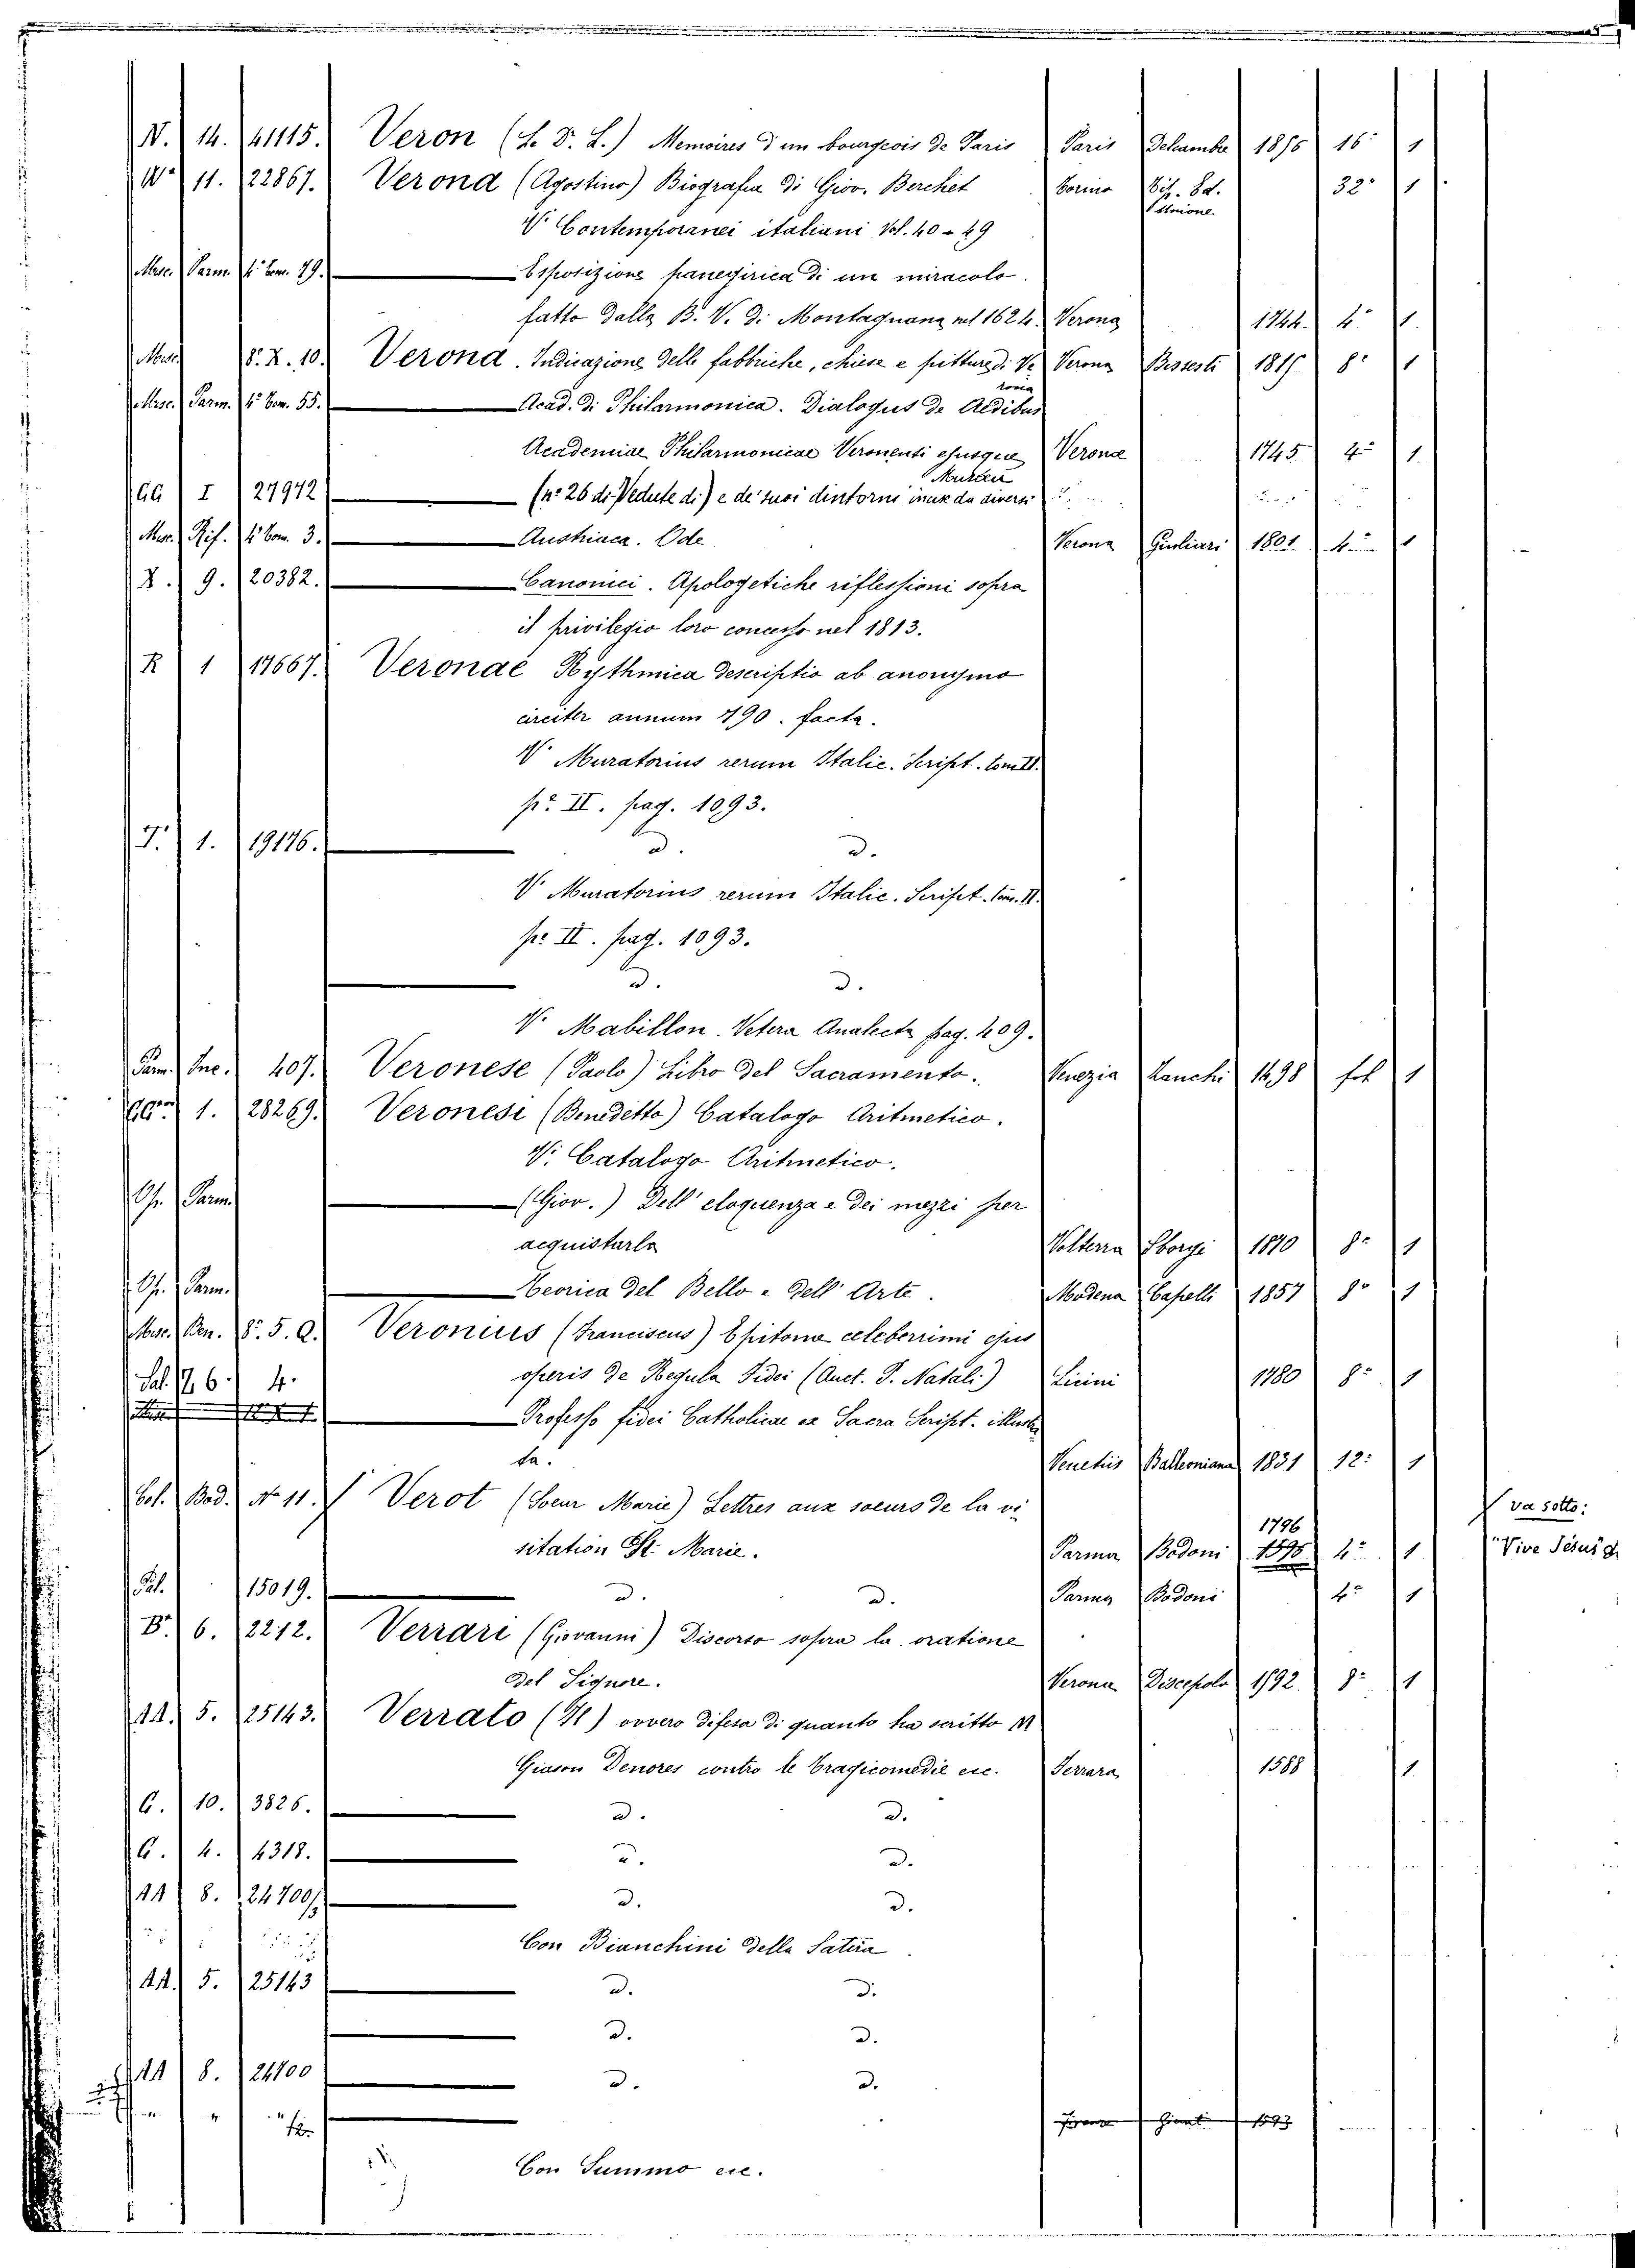 V. 14. 41115. Veron (L. D. L.) Memoires d'un bourgeois de Paris Paris 1856 16° 1
V° 11. 22867. Verona (Agostino) Biografia di Giov. Berchet Torino Tip. Ed. 32° 1
Unione
V. Contemporanei italiani Vol. 40-49
Misc. Parm. 4° tom. 29. Esposizione panegirica di un miracolo
fatto dalla B. V. di Montagnana nel 1624. Verona 1744. 4° 1.
Misc. 8. X. 10. Verona. Indicazione delle fabbriche, chiese e pitture di Ve Verona Bisesti 8° 1
rona
Misc. Parm. 4° tom. 55. Acad. di Philarmonica. Dialogus de Aedibus
Academiae Philarmonicae Veronensi ejusque Veronae 1745. 4° 1.
GG I 27972 (n° 26 di Vedute di) e de' suoi dintorni incise da diversi
Misc. Rif. 4° tom. 3. Austriaca. Ode Verona Giuliari 1801. 4° 1
X. 9. 20382. Canonici. Apologetiche riflessioni sopra
il privilegio loro concesso nel 1813.
R 1 17667. Veronae Rythmica descriptio ab anonymo
circiter annum 790. facta.
V. Muratorius rerum Italic. Script. tom II.
p.e II. pag. 1093.
T. 1. 19176. d. d.
V. Muratorius rerum Italic. Script. tom. II.
p.e II. pag. 1093.
d. d.
V. Mabillon. Vetera Analecta pag. 409.
Parm. Inc. 407. Veronese (Paolo) Libro del Sacramento. Venezia 1498 fol 1
1. 28269. Veronesi (Benedetto) Catalogo Aritmetico.
V. Catalogo Aritmetico.
Op. Parm. (Giov.) Dell' eloquenza e dei mezzi per
acquistarla Volterra Sborgi 1870 8° 1
Op. Parm. Teorica del Bello e dell' Arte. Modena Capelli 1857 8° 1
Misc. Ben. 8. 5. Q. Veronius (Franciscus) Epitome celeberrimi ejus
operis de Regula Fidei (Auct. P. Natali) Licini 1780 8° 1
Pal. 4. Professo fidei Catholicae ex Sacra Script. illustra
ta. Venetiis Balleoniana 1831 12° 1
Col. Bod. N° 11. Verot (Soeur Marie) Lettres aux soeurs de la vi va sotto:
1796
sitation St. Marie. Parma Bodoni 4° 1 "Vive Jésus
Pal. 15019. d. d. Parma Bodoni 4° 1
B. 6. 2212. Verrari (Giovanni) Discorso sopra la oratione
del Signore. Verona Discepolo 1592. 8° 1
AA. 5. 25143. Verrato (Il) ovvero difesa di quanto ha scritto M
Giason Denores contro le tragicomedie ecc. Ferrara 1588 1
C. 10. 3826. d. d.
C. 4. 4318. d. d.
AA 8. 24700 d. d.
Con Bianchini della Satira
AA. 5. 25143 d. d.
d. d.
AA 8. 24700 d. d.
" " Firenze Giunti 1593
Con Summo ecc.